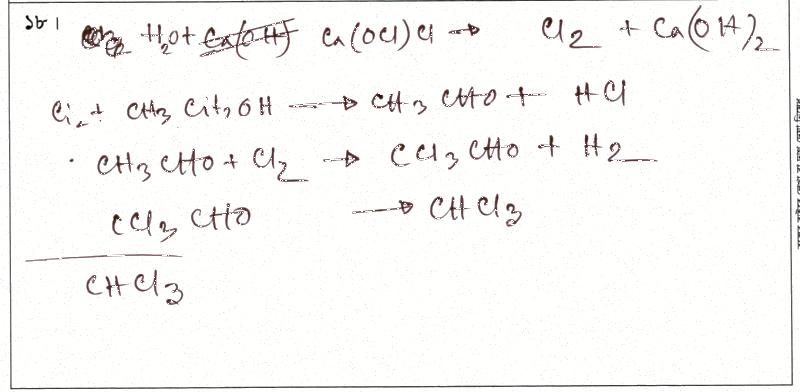 H₂O + Ca(OCl)Cl → Cl₂ + Ca(OH)₂
Cl₂ + CH₃CH₂OH → CH₃CHO + HCl
CH₃CHO + Cl₂ → CCl₃CHO + H₂
CCl₃CHO → CHCl₃
CHCl₃